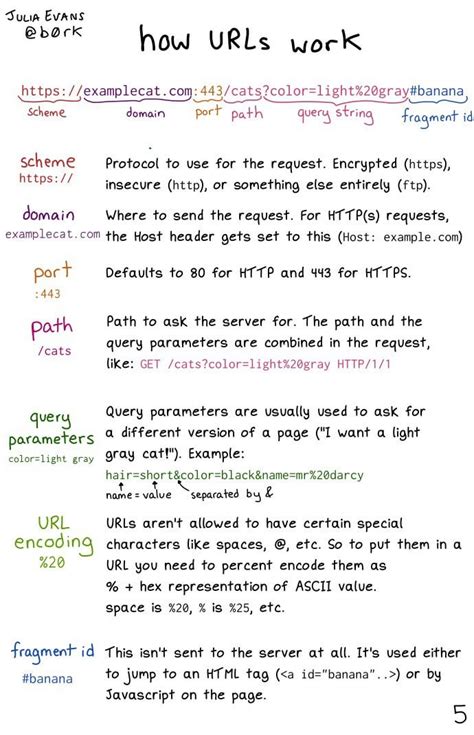 JULIA EVANS
@b0rk
how URLs work
https://examplecat.com:443/cats?color=light%20gray#banana
scheme domain port path query string fragment id
scheme
https://
Protocol to use for the request. Encrypted (https),
insecure (http), or something else entirely (ftp).
domain
examplecat.com
Where to send the request. For HTTP(s) requests,
the Host header gets set to this (Host: example.com)
port
:443
Defaults to 80 for HTTP and 443 for HTTPS.
path
/cats
Path to ask the server for. The path and the
query parameters are combined in the request,
like: GET /cats?color=light%20gray HTTP/1/1
query
parameters
color=light gray
Query parameters are usually used to ask for
a different version of a page ("I want a light
gray cat!"). Example:
hair=short&color=black&name=mr%20darcy
name = value separated by &
URL
encoding
%20
URLs aren't allowed to have certain special
characters like spaces, @, etc. So to put them in a
URL you need to percent encode them as
% + hex representation of ASCII value.
space is %20, % is %25, etc.
fragment id
#banana
This isn't sent to the server at all. It's used either
to jump to an HTML tag (<a id="banana"..>) or by
Javascript on the page.
5